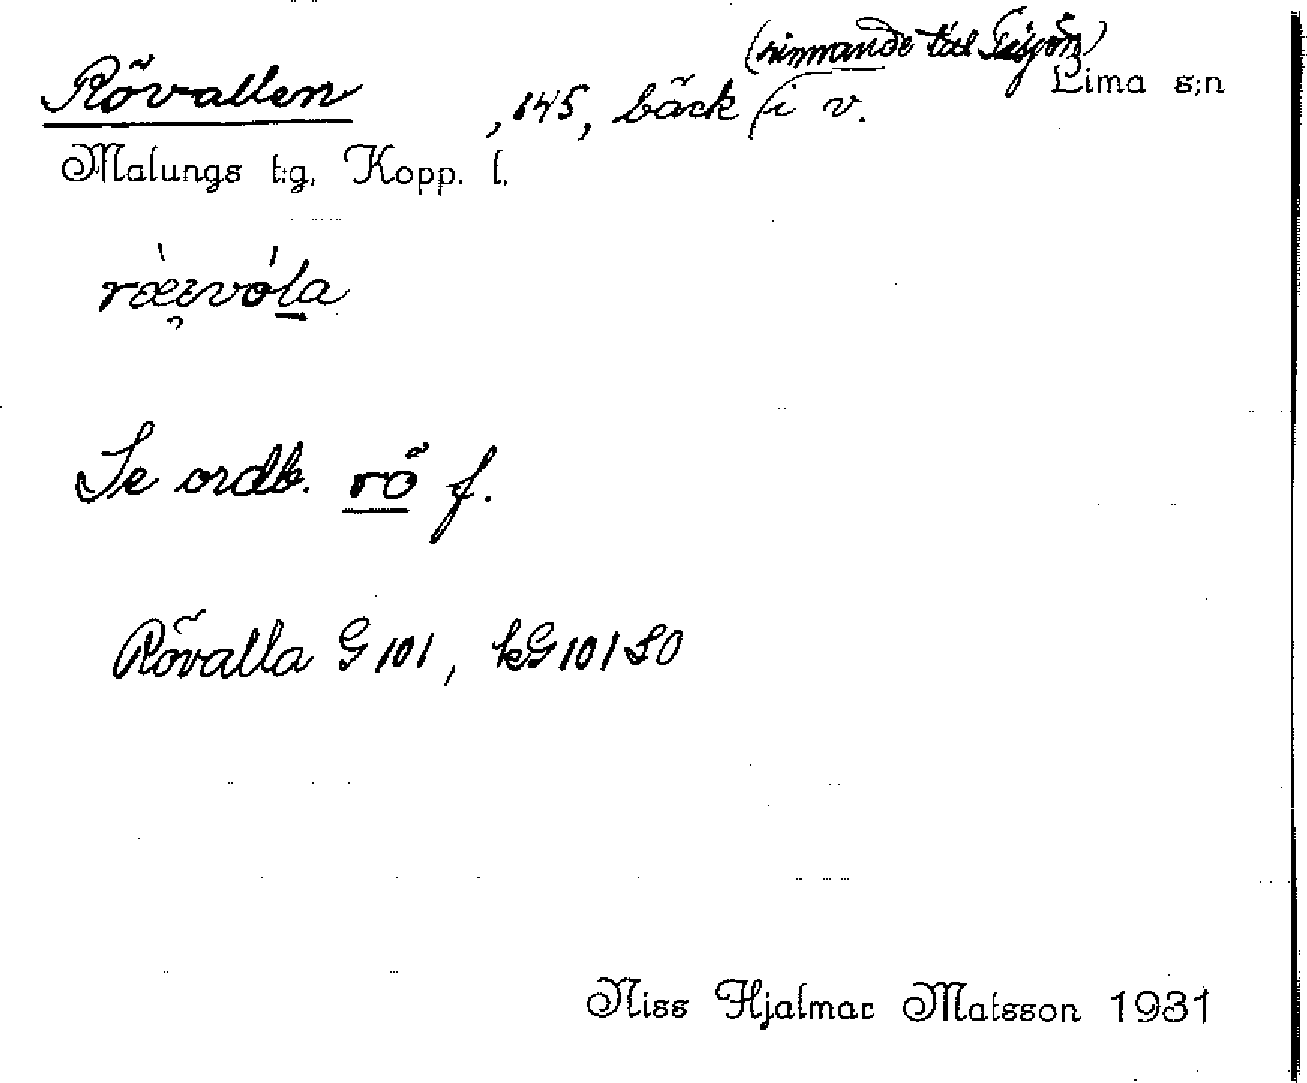 (rinnande till Tisjön)
Rövallen, 145, bäck (i v. Lima s:n
Malungs t:g, Kopp. l.
Se ordb. rö f.
Rövalla G 101, kG 101 SO
Niss Hjalmar Matsson 1931